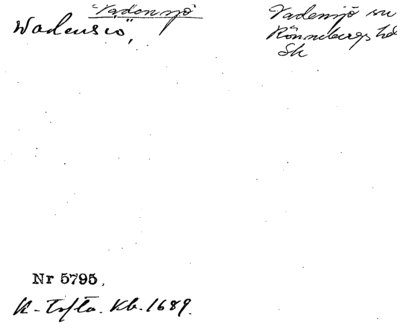 "Vadensjö"
Wadensiö,
Vadensjö sn
Rönnebergs hd
Sk
Nr 5795.
K-Tofta. Kb. 1689.